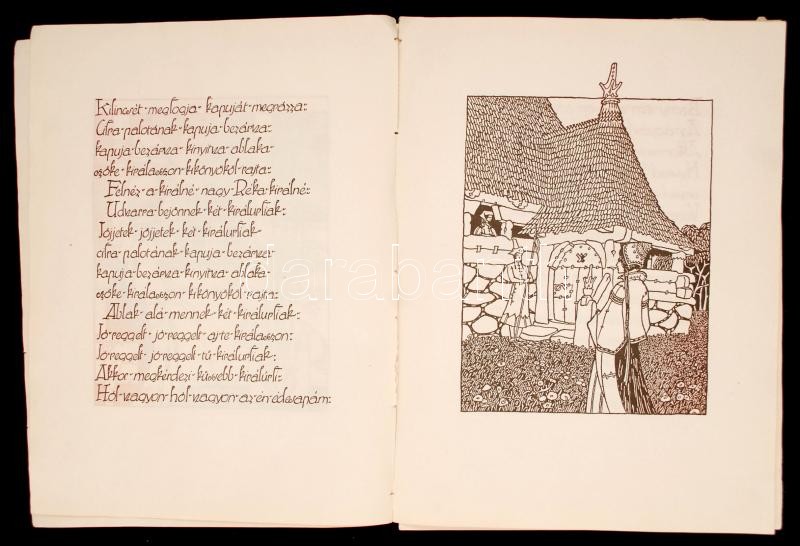 Kilincsét·megfogja·kapuját·megrázza:
Cifra·palotának·kapuja·bezárva:
kapuja·bezárva·kinyitva·ablaka·
szőke·királasszon·kikönyököl·rajta:
Felnéz·a·királné·nagy·Réka·királné:
Udvarra·bejönnek·két·királurfiak:
Jöjjetek·jöjjetek·két·királurfiak
cifra·palotának·kapuja·bezárva
kapuja·bezárva·kinyitva·ablaka·
szőke·királasszon·kikönyököl·rajta:
Ablak·alá·mennek·két·királurfiak:
Jó·reggelt·jó·reggelt·aj·te·királasszon:
Jó·reggelt·jó·reggelt·tü·királurfiak:
Akkor·megkérdezi·küssebb·királurfi:
Hol·vagyon·hol·vagyon·az·én·édesapám:
darabanth